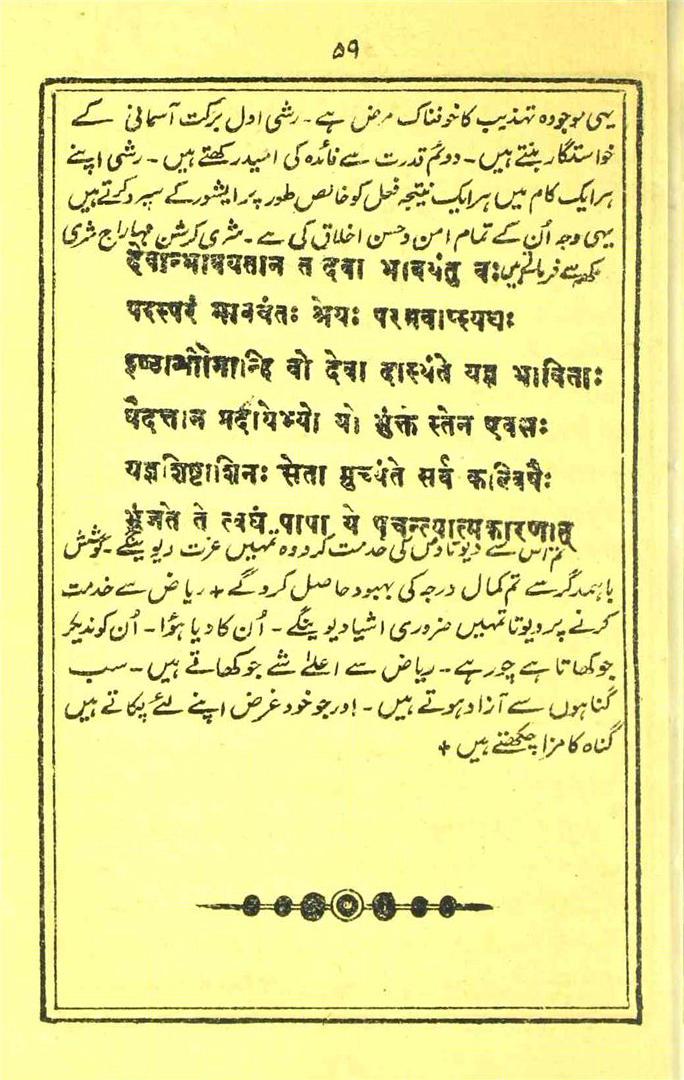 ۵۹
یہی موجودہ تہذیب کا خوفناک مرض ہے۔ رشی اول برکت آسمانی کے
خواستگار بنتے ہیں۔ دوئم قدرت سے فائدہ کی امید رکھتے ہیں۔ رشی اپنے
ہر ایک کام میں ہر ایک نتیجہ فعل کو خالص طور پر ایشور کے سپرد کرتے ہیں
یہی وجہ اُن کے تمام امن و حسن اخلاق کی ہے۔ شری کرشن مہاراج شری
مکھ سے فرماتے ہیں
देवान्भावयतान त देवा भावयंतु वः
परस्परं भावयंतः श्रेयः परमवाप्स्यथः
इष्ठाभोगान्हि वो देवा दास्यंते यज्ञ भाविताः
भुंक्ते स्तेन एवसः
यज्ञशिष्टाशिनः सेता मुच्यंते सर्व कल्विषैः
भुंजते ते त्वघं पापा ये पचन्त्यात्मकारणात्
تم اس سے دیوتاؤں کی خدمت کرو وہ تمہیں عزت دیوینگے۔ کوشش
باہمدگر سے تم کمال درجہ کی بہبود حاصل کرو گے + ریاض سے خدمت
کرنے پر دیوتا تمہیں ضروری اشیا دیوینگے۔ اُن کا دیا ہؤا۔ اُن کو ندیکر
جو کھاتا ہے چور ہے۔ ریاض سے اعلےٰ شے جو کھاتے ہیں۔ سب
گناہوں سے آزاد ہوتے ہیں۔ اور جو خود غرض اپنے لئے پکاتے ہیں
گناہ کا مزا چکھتے ہیں +